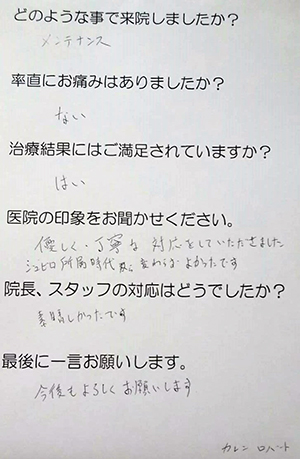 どのような事で来院しましたか？
メンテナンス
率直にお痛みはありましたか？
ない
治療結果にはご満足されていますか？
はい
医院の印象をお聞かせください。
優しく、丁寧な対応をしていただきました
ジュビロ所属時代から変わらずよかったです
院長、スタッフの対応はどうでしたか？
素晴しかったです
最後に一言お願いします。
今後もよろしくお願いします
カレン ロバート